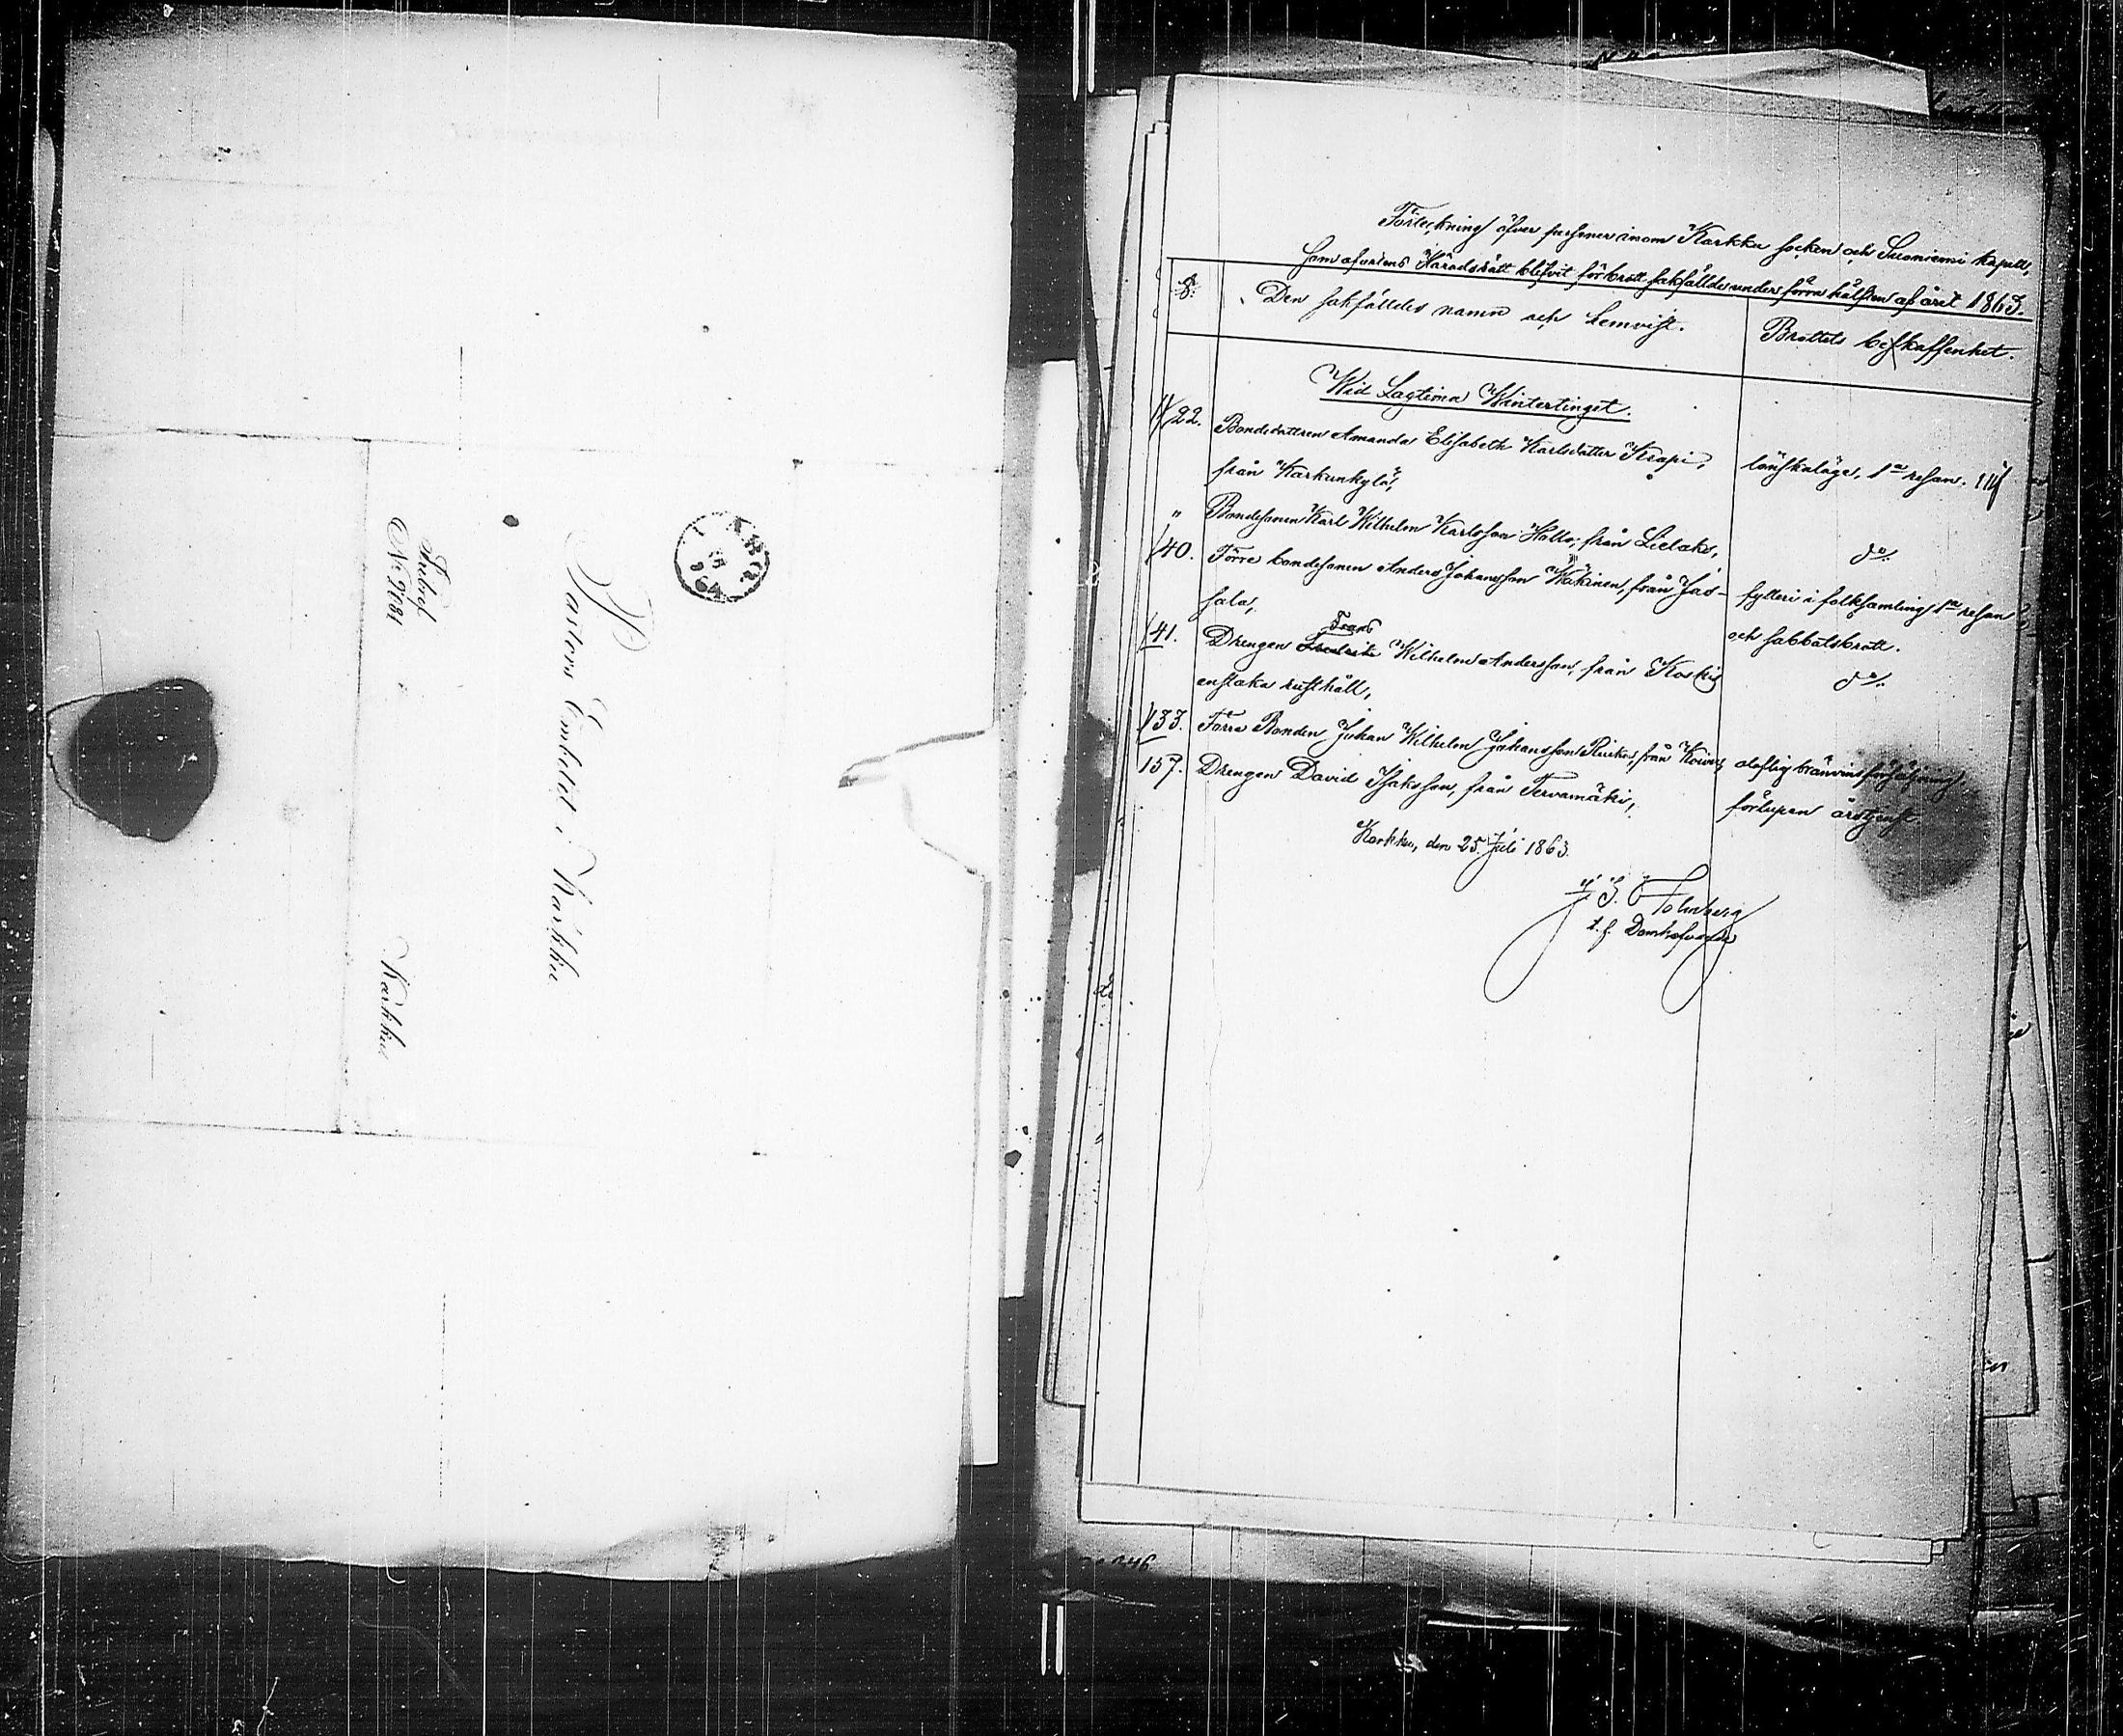 Pastors Embetet i Karkku
Fribref
No 2081
Karkku
Förteckning öfver personer inom Karkku socken och Suoniemi kapell,
som af ortens Häradsrätt blifvit för brott sakfällde under förra hälften af året 1863.
§. Den sakfälldes namn och hemvist. Brottets beskaffenhet.
Wid Lagtima Wintertinget.
22. Bondedottren Amanda Elisabeth Karlsdotter Krapi, lönskaläge, 1a resan.
från Karkunkylä,
" Bondesonen Karl Wilhelm Karlsson Hallo, från Lielaks, do
40. Förre bondesonen Anders Johansson Mäkinen, från Jas- fylleri i folksamling 1a resan
sala, och sabbatsbrott.
41. Drengen Frans Wilhelm Andersson, från Koskis do
enstaka rusthåll,
133. Förra Bonden Johan Wilhelm Johansson, från olaflig bränvinsförsäljning,
157. Drengen David Isaksson, från Tervamäki, förlupen årstjenst.
Karkku, den 25. Juli 1863.
t. f. Domhafvande